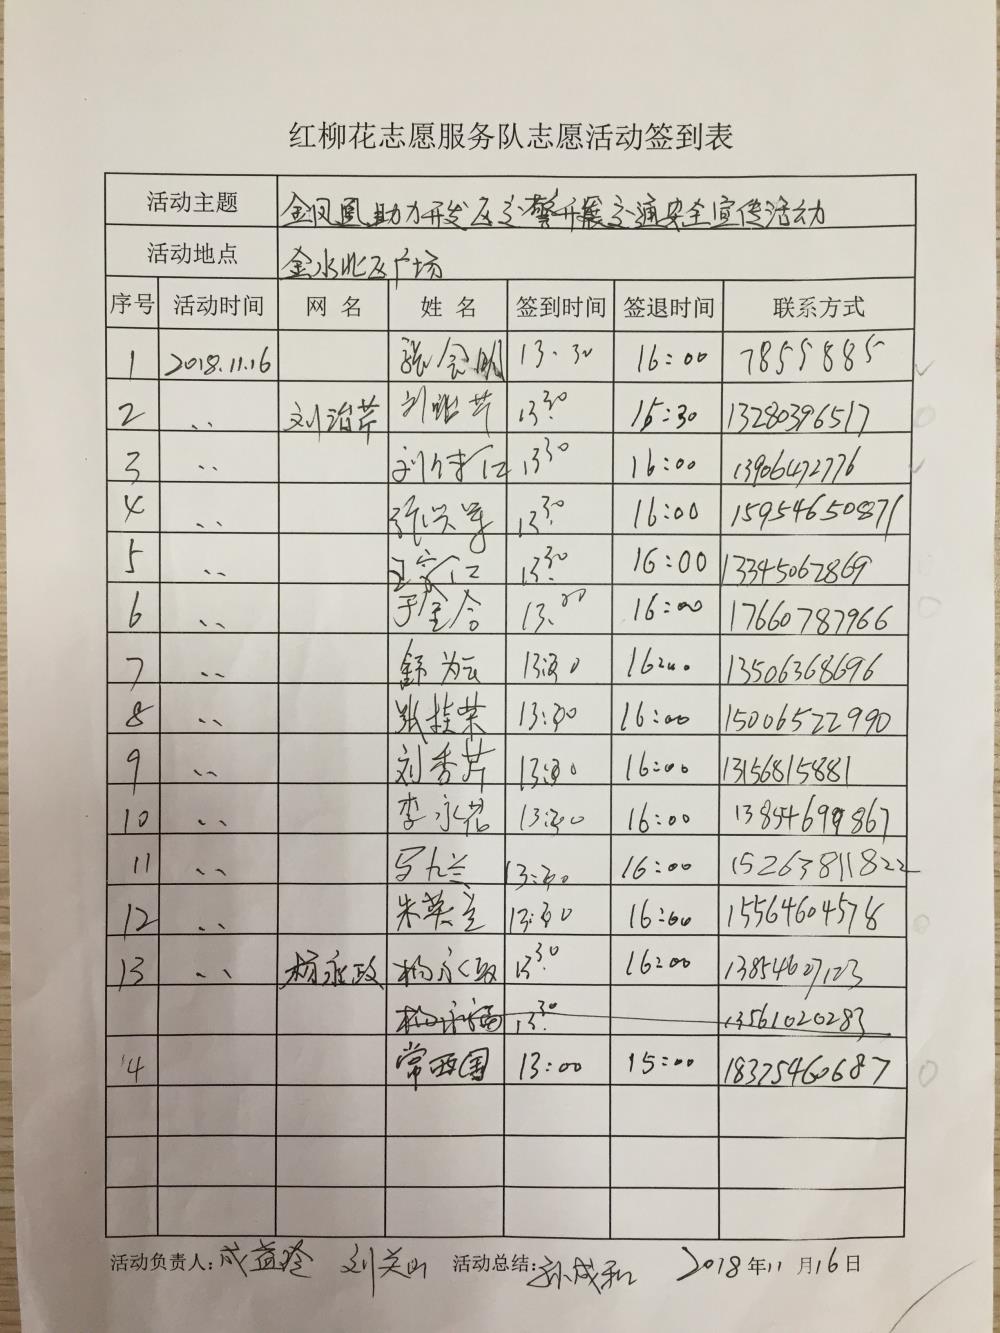 红柳花志愿服务队志愿活动签到表
活动主题 金凤凰助力开发区交警开展交通安全宣传活动
活动地点 金水北区广场
序号 活动时间 网 名 姓 名 签到时间 签退时间 联系方式
1 2018.11.16 13.30 16:00 7855885
2 〃 刘治芹 刘治芹 13.30 15:30 13280396517
3 〃 13 30 16:00 13906472776
4 〃 13.30 16:00 15954650871
5 〃 13.30 16:00 13345062869
6 〃 于金合 13.00 16:00 17660787966
7 〃 舒为云 13:30 16:00 13506368696
8 〃 张桂荣 13:30 16:00 15006522990
9 〃 刘香芹 13:30 16:00 13156815881
10 〃 李永花 13:30 16:00 13854699867
11 〃 马九兰 13:30 16:00 15263811822
12 〃 朱英兰 13:30 16:00 15564604578
13 〃 杨永政 杨永政 13.30 16:00 13854607123
杨永福 13.30 13561020283
14 常西国 13:00 15:00 18375460687
活动负责人: 成益玲 刘关山 活动总结: 孙成和 2018年11月16日